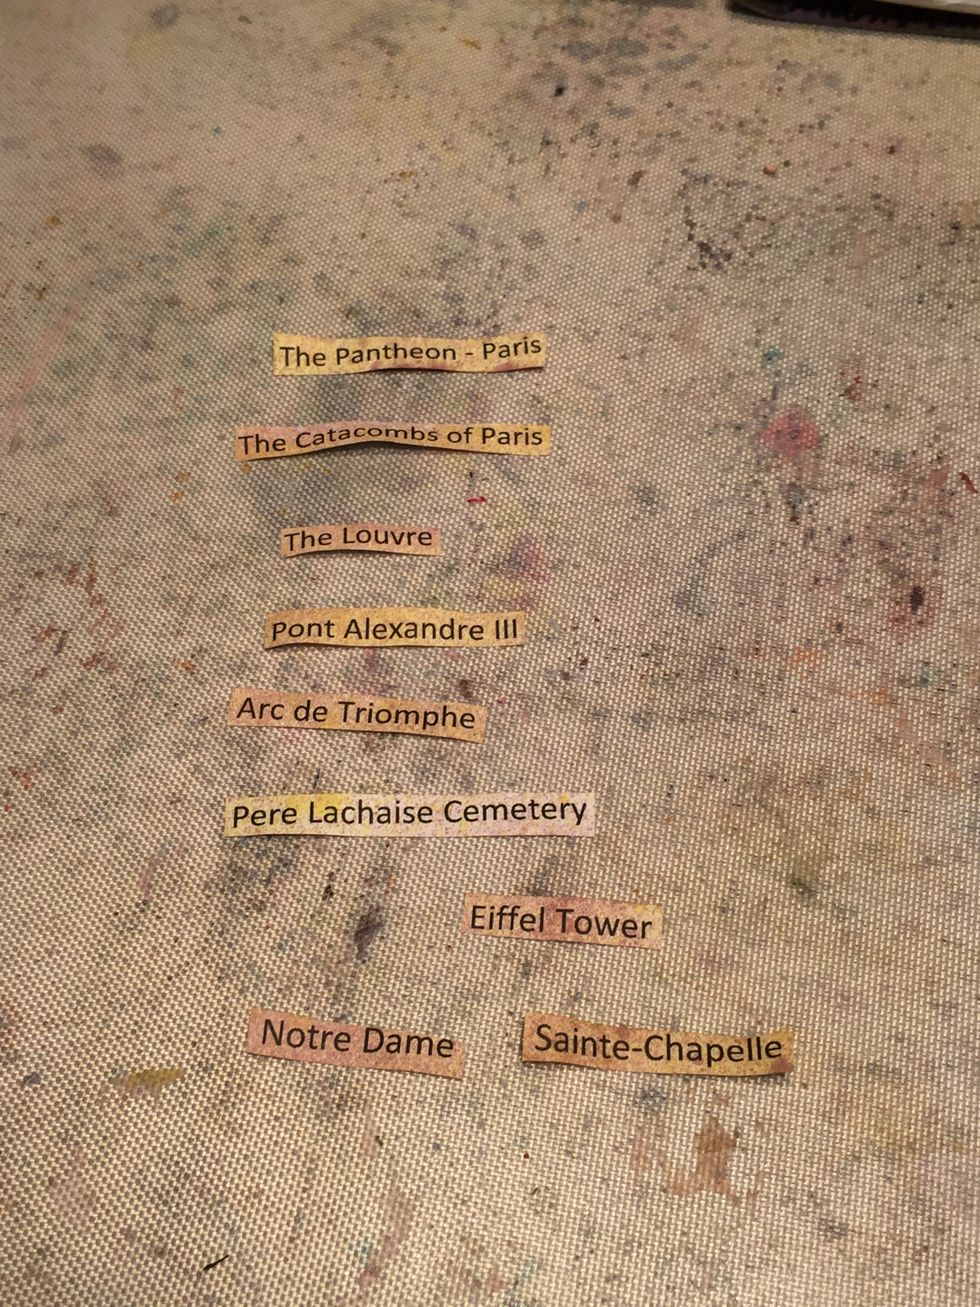 The Pantheon - Paris
The Catacombs of Paris
The Louvre
Pont Alexandre III
Arc de Triomphe
Pere Lachaise Cemetery
Eiffel Tower
Notre Dame
Sainte-Chapelle